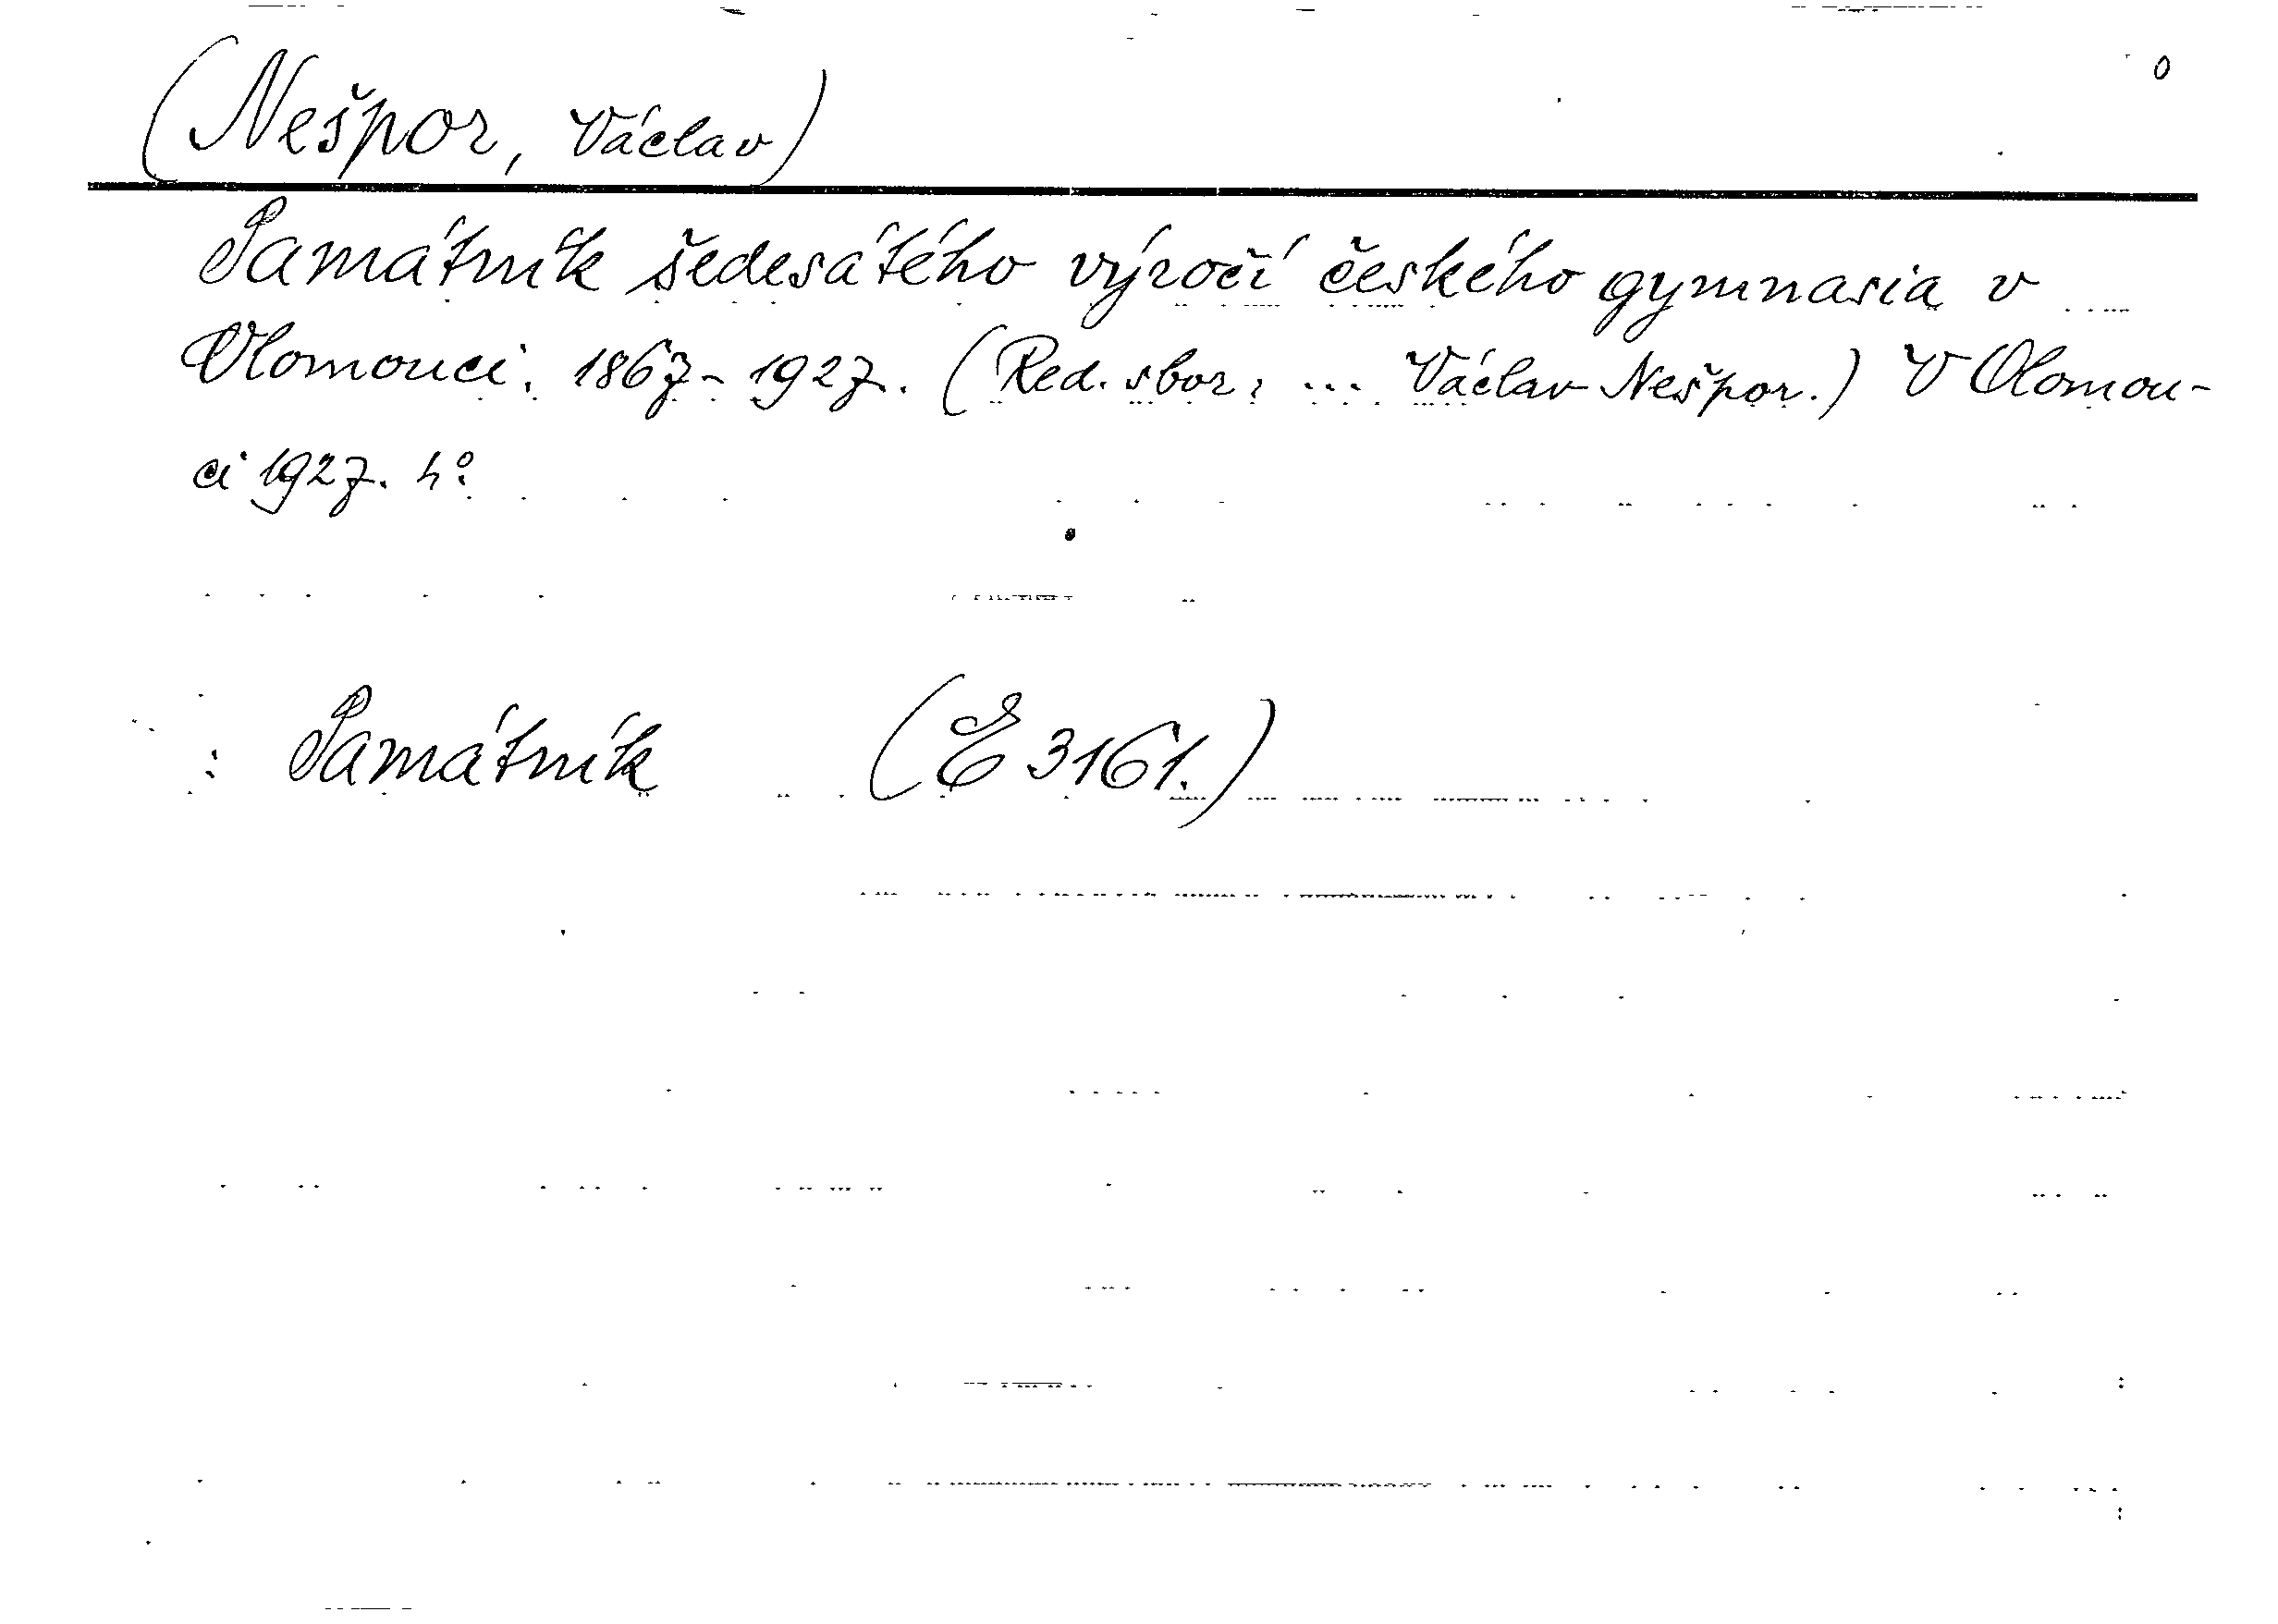 0
(Nešpor, Václav)
Památník šedesátého výročí českého gymnasia v
Olomouci. 1867-1927. (Red. sbor: ... Václav Nešpor.) V Olomou-
ci 1927. 4°.
: Památník (E 3161.)